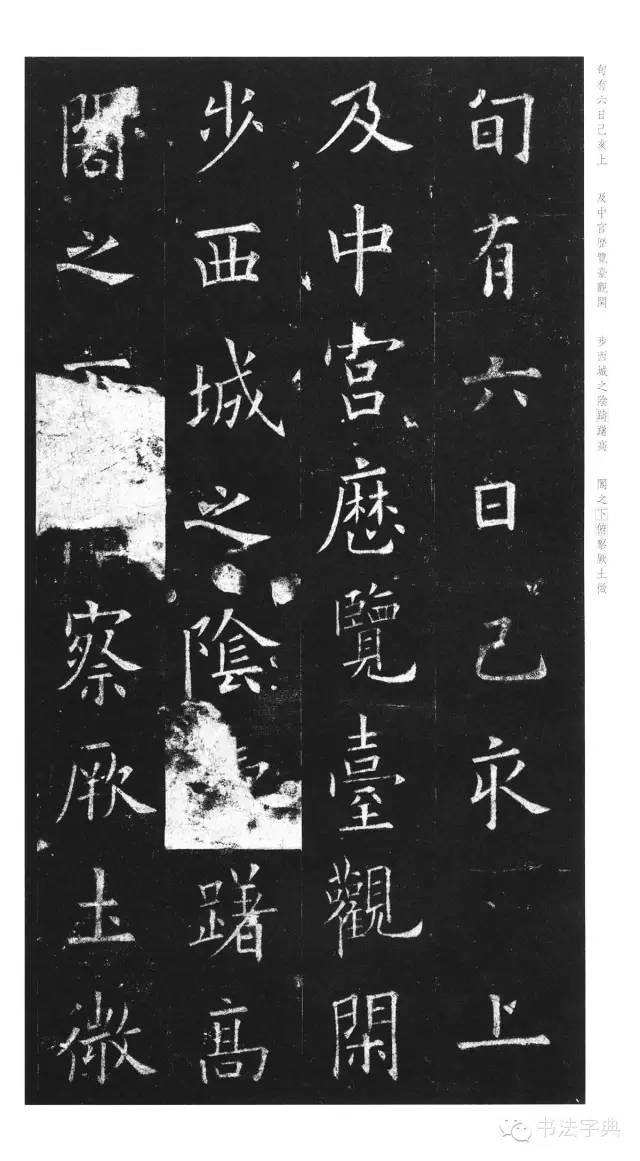 旬有六日己亥上
及中宮歷覽臺觀閑
步西城之陰躇高
閣之下察厥土微
旬有六日己亥上 及中宮歷覽臺觀閑 步西城之陰躊躇高 閣之下俯察厥土微
书法字典